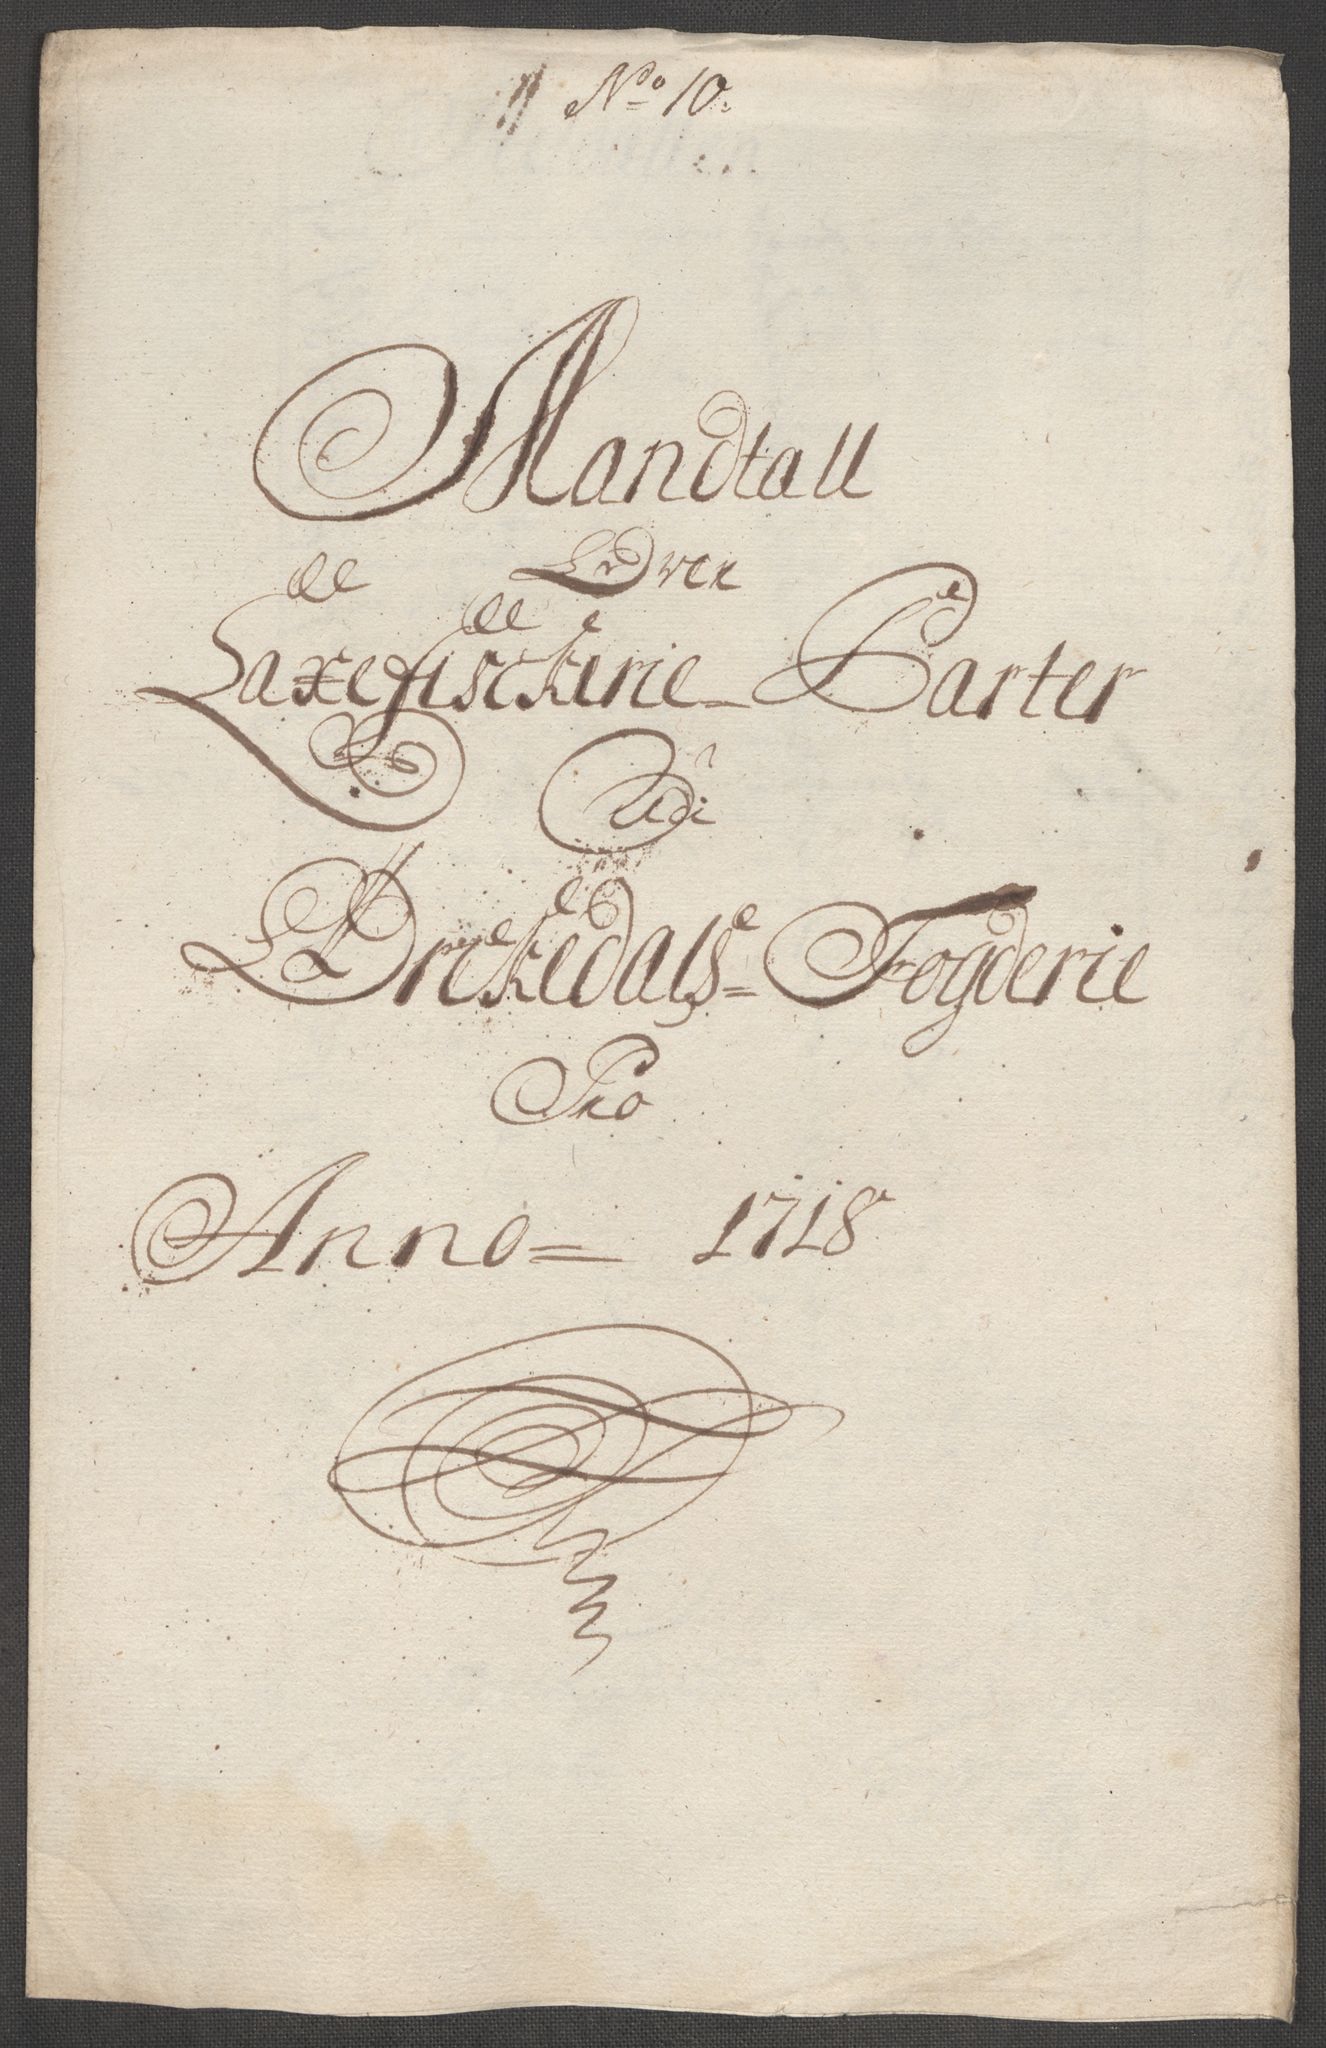 No 10.
Mandtall
Over
Laxefischerie Parter
Udi
Orckedals Fogderie
Pro
Anno 1718